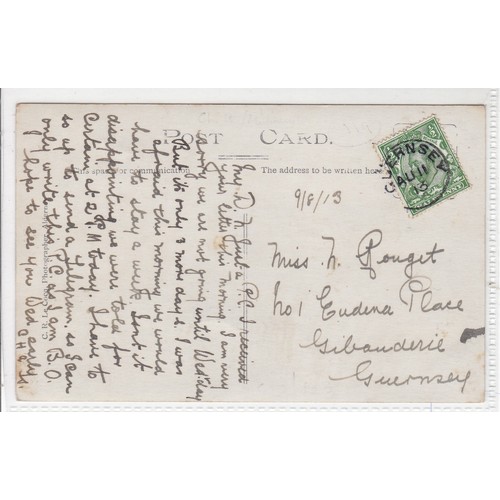 POST CARD.
This space for communication
The address to be written here
GUERNSEY
AU 11
13
9/8/13
Miss N. Rouget
No 1 Eudena Place
Gibauderie
Guernsey
received
your letter this morning. I am very
sorry we are not going until Wednesday
But its only 3 more days. I was
afraid this morning we would
have to stay a week. Isnt it
disappointing we were told for
certain at 2 P.M today. I have to
so up to send a telegram. so I can
only write this P.C.
I hope to see you Wed early.